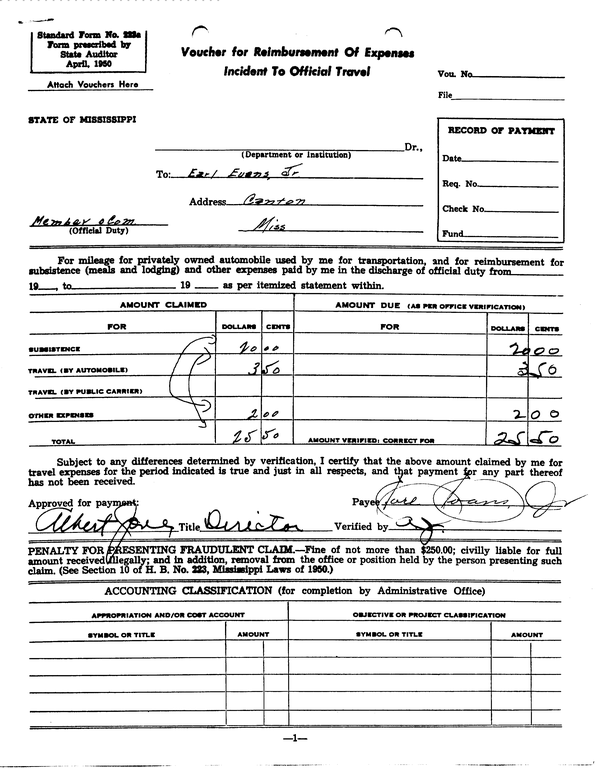 Standard Form No. 223a
Form prescribed by
State Auditor
April, 1950
Attach Vouchers Here
Voucher for Reimbursement Of Expenses
Incident To Official Travel
Vou. No.
File
STATE OF MISSISSIPPI
Dr.,
(Department or Institution)
To: Earl Evans, Jr
Address Canton
Miss
Member
(Official Duty)
RECORD OF PAYMENT
Date
Req. No.
Check No.
Fund
For mileage for privately owned automobile used by me for transportation, and for reimbursement for
subsistence (meals and lodging) and other expenses paid by me in the discharge of official duty from
19 , to 19 as per itemized statement within.
AMOUNT CLAIMED AMOUNT DUE (AS PER OFFICE VERIFICATION)
FOR DOLLARS CENTS FOR DOLLARS CENTS
SUBSISTENCE 20 00 20 00
TRAVEL (BY AUTOMOBILE) 3 50 3 50
TRAVEL (BY PUBLIC CARRIER)
OTHER EXPENSES 2 00 2 00
TOTAL 25 50 AMOUNT VERIFIED: CORRECT FOR 25 50
Subject to any differences determined by verification, I certify that the above amount claimed by me for
travel expenses for the period indicated is true and just in all respects, and that payment for any part thereof
has not been received.
Approved for payment: Payee Earl Evans, Jr
Albert Jones Title Director Verified by
PENALTY FOR PRESENTING FRAUDULENT CLAIM.—Fine of not more than $250.00; civilly liable for full
amount received illegally; and in addition, removal from the office or position held by the person presenting such
claim. (See Section 10 of H. B. No. 223, Mississippi Laws of 1950.)
ACCOUNTING CLASSIFICATION (for completion by Administrative Office)
APPROPRIATION AND/OR COST ACCOUNT OBJECTIVE OR PROJECT CLASSIFICATION
SYMBOL OR TITLE AMOUNT SYMBOL OR TITLE AMOUNT
—1—